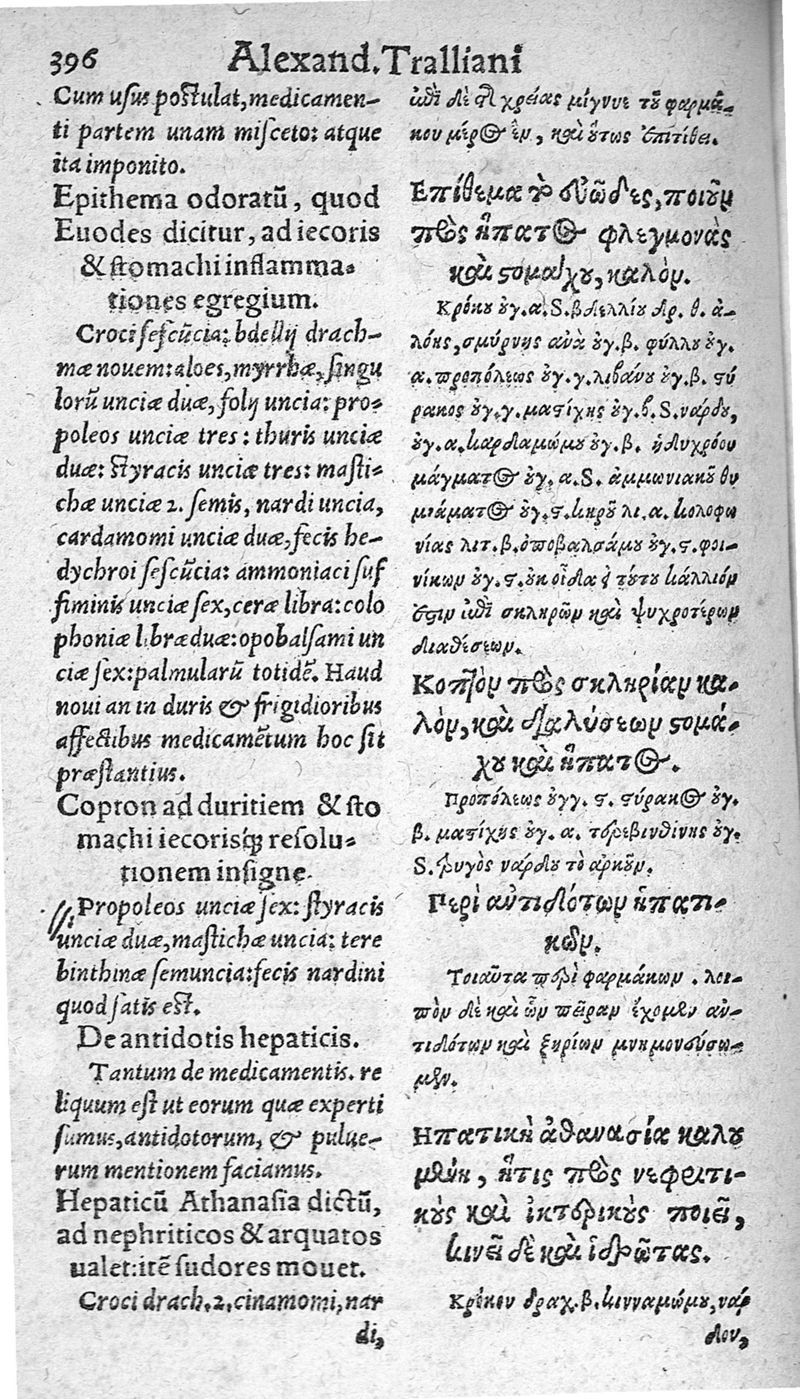 396 Alexand. Tralliani
Cum uſus poſtulat, medicamen-
ti partem unam miſceto: atque
ita imponito.
Epithema odoratũ, quod
Euodes dicitur, ad iecoris
& ſtomachi inflamma-
tiones egregium.
Croci ſeſcũcia: bdellij drach-
mæ nouem: aloes, myrrhæ, ſingu
lorũ unciæ duæ, folij uncia: pro-
poleos unciæ tres: thuris unciæ
duæ: ſtyracis unciæ tres: maſti-
chæ unciæ 2. ſemis, nardi uncia,
cardamomi unciæ duæ, fecis he-
dychroi ſeſcũcia: ammoniaci ſuf
fiminis unciæ ſex, ceræ libra: colo
phoniæ libræ duæ: opobalſami un
ciæ ſex: palmularũ totidẽ. Haud
noui an in duris & frigidioribus
affectibus medicamẽtum hoc ſit
præſtantius.
Copton ad duritiem & ſto
machi iecorisq́; reſolu-
tionem inſigne.
Propoleos unciæ ſex: ſtyracis
unciæ duæ, maſtichæ uncia: tere
binthinæ ſemuncia: fecis nardini
quod ſatis eſt.
De antidotis hepaticis.
Tantum de medicamentis. re
liquum eſt ut eorum quæ experti
ſumus, antidotorum, & pulue-
rum mentionem faciamus.
Hepaticũ Athanaſia dictũ,
ad nephriticos & arquatos
ualet: itẽ ſudores mouet.
Croci drach. 2. cinamomi, nar
di,
ἐπὶ δὲ τῆς χρείας μίγνυε τοῦ φαρμά-
κου μέρος ἓν, καὶ οὕτως ἐπιτίθει.
Επίθεμα τὸ εὐῶδες, ποιοῦν
πρὸς ἥπατος φλεγμονὰς
καὶ στομάχου, καλόν.
Κρόκου ουγ. α. S. βδελλίου δρ. θ. ἀ-
λόης, σμύρνης ἀνὰ ουγ. β. φύλλου ουγ.
α. προπόλεως ουγ. γ. λιβάνου ουγ. β. στύ
ρακος ουγ. γ. μαστίχης ουγ. β. S. νάρδου,
ουγ. α. καρδαμώμου ουγ. β. ἡδυχρόου
μάγματος ουγ. α. S. ἀμμωνιακοῦ θυ
μιάματος ουγ. ϛ. κηροῦ λι. α. κολοφω
νίας λιτ. β. ὀποβαλσάμου ουγ. ϛ. φοι-
νίκων ουγ. ϛ. οὐκ οἶδα εἰ τούτου κάλλιόν
ἐστιν ἐπὶ σκληρῶν καὶ ψυχροτέρων
διαθέσεων.
Κοπτὸν πρὸς σκληρίαν κα-
λὸν, καὶ διαλύσεων στομά-
χου καὶ ἥπατος.
Προπόλεως ουγγ. ϛ. στύρακος ουγ.
β. μαστίχης ουγ. α. τερεβινθίνης ουγ.
S. φρυγὸς νάρδου τὸ ἀρκοῦν.
Περὶ αὐτιδότων ἡπατι-
κῶν.
Τοιαῦτα περὶ φαρμάκων. λοι-
πὸν δὲ καὶ ὧν πεῖραν ἔχομεν ἀν-
τιδότων καὶ ξηρίων μνημονεύσω-
μεν.
Ηπατικὴ ἀθανασία καλου
μένη, ἥτις πρὸς νεφριτι-
κοὺς καὶ ἰκτερικοὺς ποιεῖ,
κινεῖ δὲ καὶ ἱδρῶτας.
Κρόκου δραχ. β. κινναμώμου, νάρ
δου,